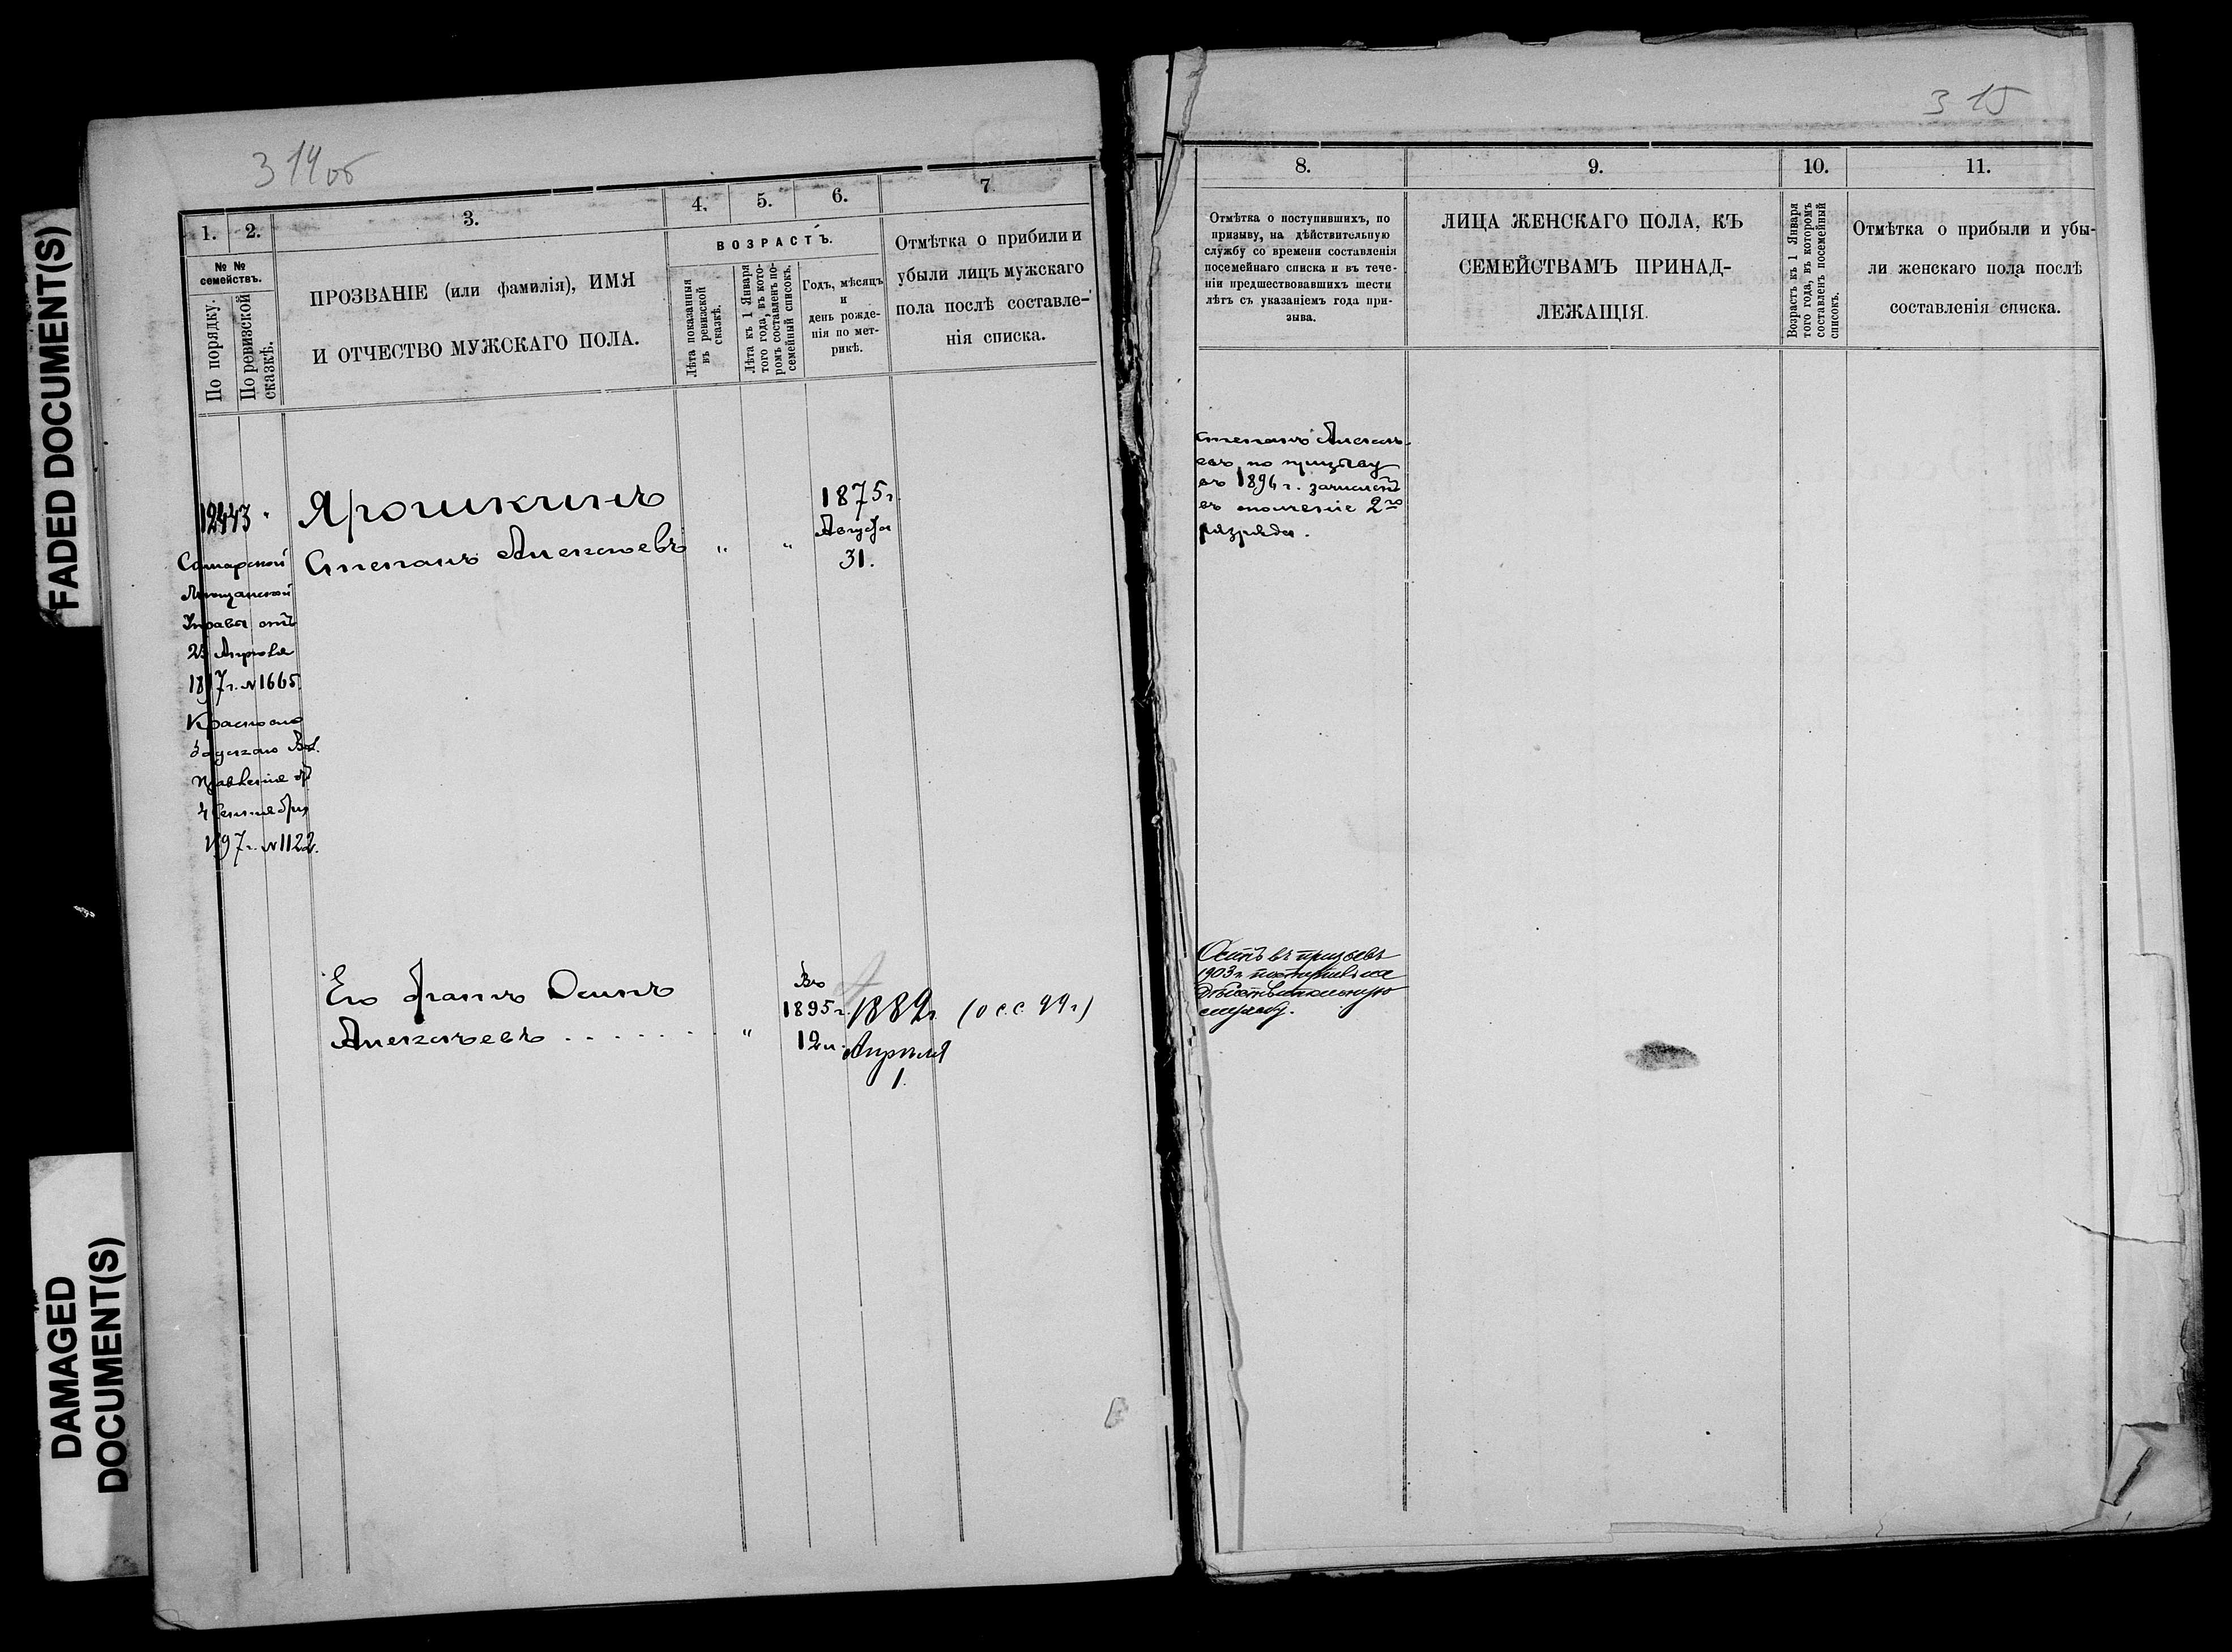 FADED DOCUMENT(S)
DAMAGED
DOCUMENT(S)
314 об
1. 2. 3. 4. 5. 6. 7
№ № семействъ.
По порядку.
По ревизской сказкѣ.
ПРОЗВАНІЕ (или фамилія), ИМЯ
И ОТЧЕСТВО МУЖСКАГО ПОЛА.
ВОЗРАСТЪ.
Лѣта показанныя
въ ревизской
сказкѣ.
Лѣта къ 1 Января
того года, въ кото-
ромъ составленъ по-
семейный списокъ.
Годъ, мѣсяцъ
и
день рожде-
нія по мет-
рикѣ.
Отмѣтка о прибили и
убыли лицъ мужскаго
пола послѣ составле-
нія списка.
12443
Самарской
Мѣщанской
Управы отъ
25 Апрѣля
1897 г. № 1665
Красно
Вол.
Правленія от
4 Сентября
1897 г. № 1122.
Ярошкинъ
Степанъ Алексѣевъ " "
1875 г.
Августа
31.
Его братъ Осипъ
Алексѣевъ . . . . . . "
Въ
1895 г.
12 л.
1882 г. (о с.с. 99 г)
Апрѣля
1.
315
8. 9. 10. 11.
Отмѣтка о поступившихъ, по
призыву, на дѣйствительную
службу со времени составленія
посемейнаго списка и въ тече-
ніи предшествовавшихъ шести
лѣтъ съ указаніемъ года при-
зыва.
ЛИЦА ЖЕНСКАГО ПОЛА, КЪ
СЕМЕЙСТВАМЪ ПРИНАД-
ЛЕЖАЩІЯ.
Возрастъ къ 1 Января
того года, въ которомъ
составленъ посемейный
списокъ.
Отмѣтка о прибыли и убы-
ли женскаго пола послѣ
составленія списка.
Степанъ Алексѣ-
евъ, по призыву
въ 1896 г. зачисленъ
въ ополченіе 2го
разряда.
Осипъ въ призывъ
1903 г. поступилъ на
дѣйствительную
службу.